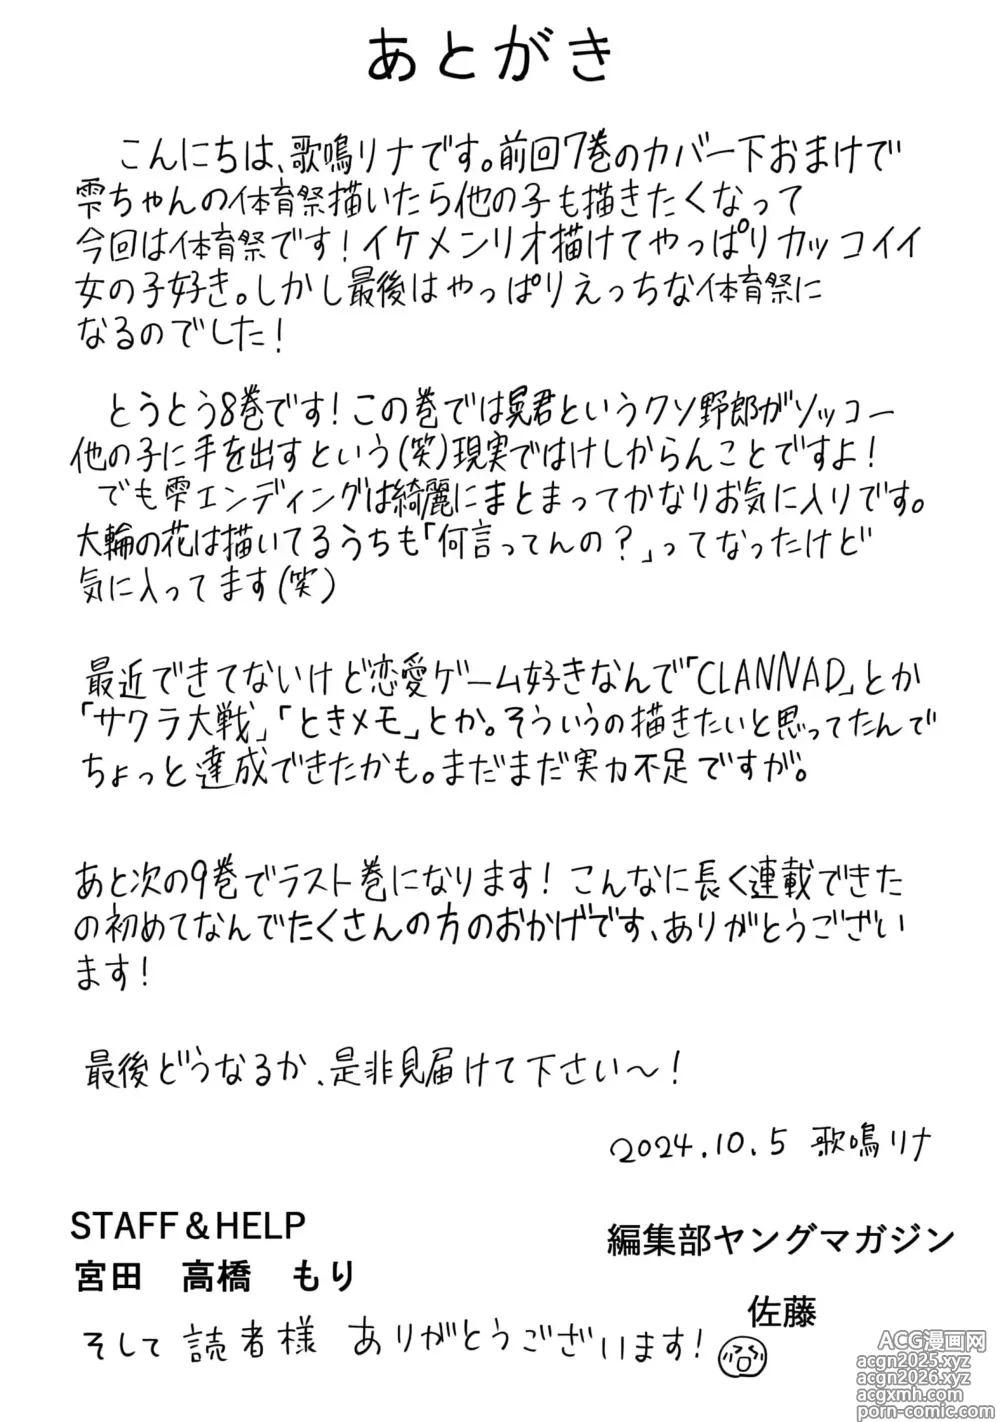 あとがき
こんにちは、歌鳴リナです。前回7巻のカバー下おまけで
雫ちゃんの体育祭描いたら他の子も描きたくなって
今回は体育祭です!イケメンリオ描けてやっぱりカッコイイ
女の子好き。しかし最後はやっぱりえっちな体育祭に
なるのでした!
とうとう8巻です!この巻では晃君というクソ野郎がソッコー
他の子に手を出すという(笑)現実ではけしからんことですよ!
でも雫エンディングは綺麗にまとまってかなりお気に入りです。
大輪の花は描いてるうちも「何言ってんの?」ってなったけど
気に入ってます(笑)
最近できてないけど恋愛ゲーム好きなんで「CLANNAD」とか
「サクラ大戦」「ときメモ」とか。そういうの描きたいと思ってたんで
ちょっと達成できたかも。まだまだ実力不足ですが。
あと次の9巻でラスト巻になります!こんなに長く連載できた
の初めてなんでたくさんの方のおかげです、ありがとうござい
ます!
最後どうなるか、是非見届けて下さい〜!
2024.10.5 歌鳴リナ
STAFF&HELP
宮田 高橋 もり
編集部ヤングマガジン
佐藤
そして読者様 ありがとうございます!
ACG漫画网
acgn2025.xyz
acgn2026.xyz
acgxmh.com
porn-comic.com